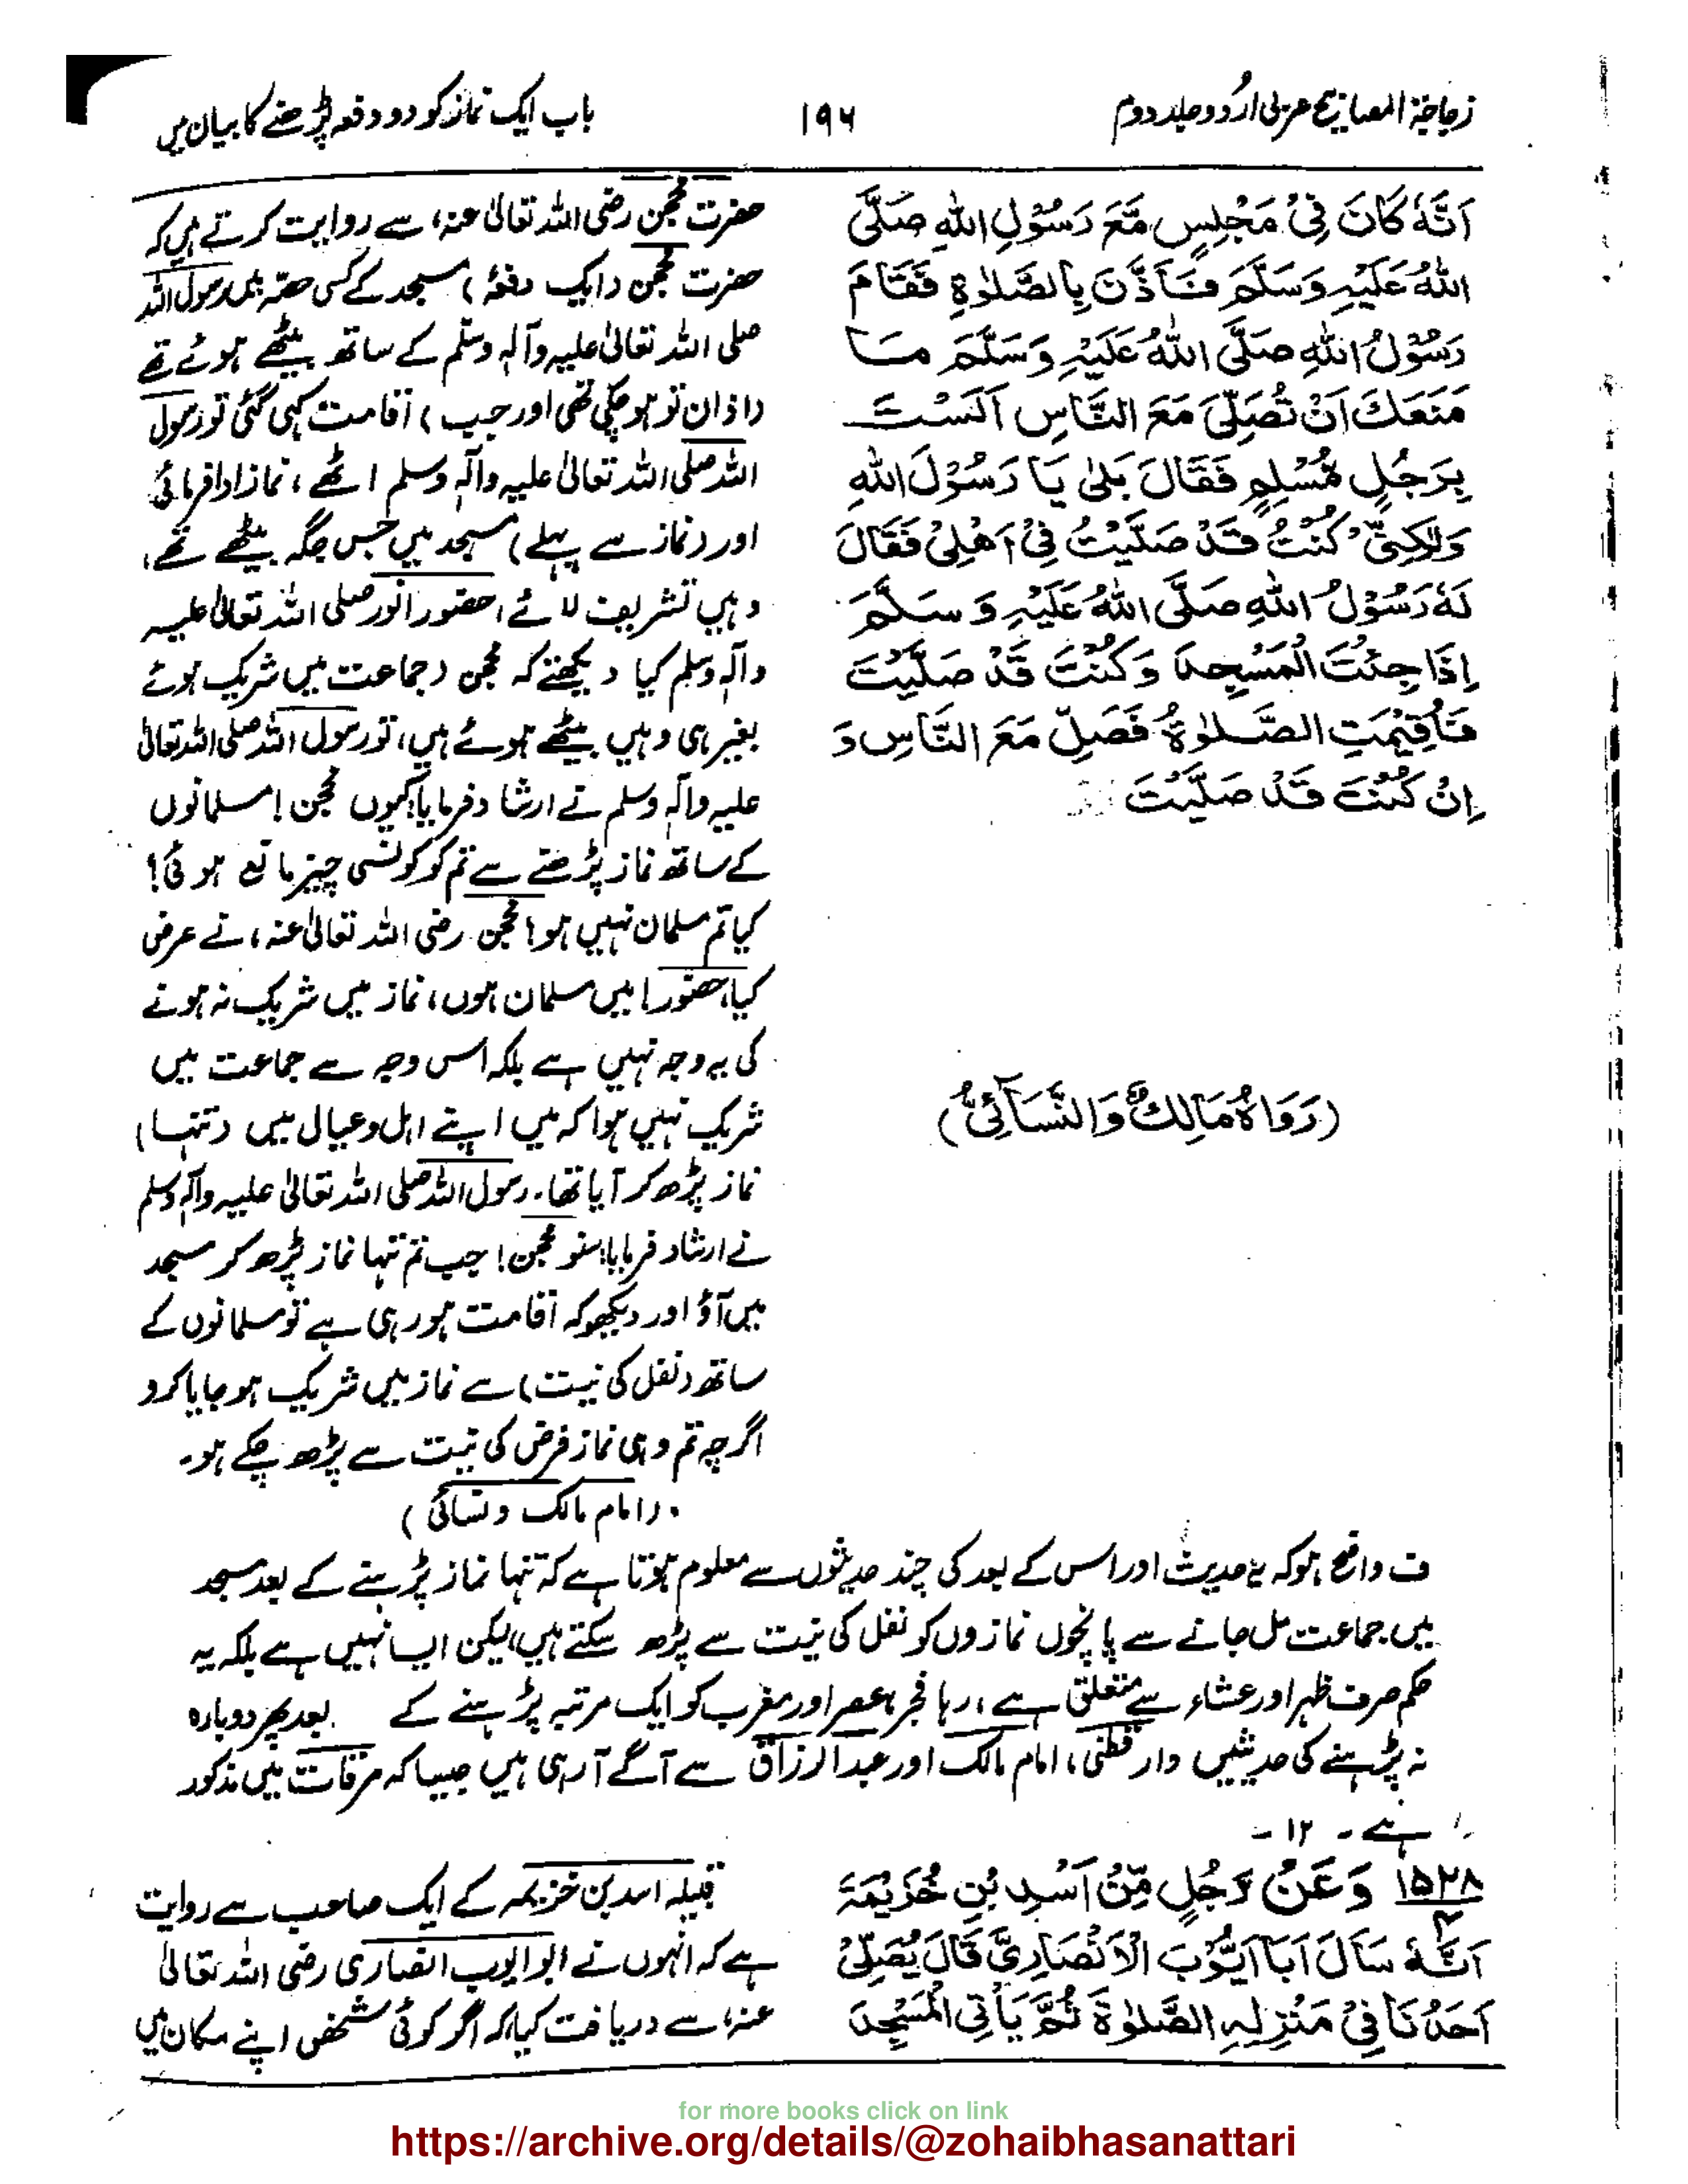 زجاجۃ المصابیح عربی اردو جلد دوم
۱۹۶
باب ایک نماز کو دو دفعہ پڑھنے کا بیان میں
اَنَّهٗ كَانَ فِيْ مَجْلِسٍ مَّعَ رَسُوْلِ اللهِ صَلَّى
اللهُ عَلَيْهِ وَسَلَّمَ فَاَذَّنَ بِالصَّلٰوةِ فَقَامَ
رَسُوْلُ اللهِ صَلَّى اللهُ عَلَيْهِ وَسَلَّمَ مَا
مَنَعَكَ اَنْ تُصَلِّيَ مَعَ النَّاسِ اَلَسْتَ
بِرَجُلٍ مُّسْلِمٍ فَقَالَ بَلٰى يَا رَسُوْلَ اللهِ
وَلٰكِنِّيْ كُنْتُ قَدْ صَلَّيْتُ فِيْ اَهْلِيْ فَقَالَ
لَهٗ رَسُوْلُ اللهِ صَلَّى اللهُ عَلَيْهِ وَسَلَّمَ
اِذَا جِئْتَ الْمَسْجِدَ وَكُنْتَ قَدْ صَلَّيْتَ
فَاُقِيْمَتِ الصَّلٰوةُ فَصَلِّ مَعَ النَّاسِ وَ
اِنْ كُنْتَ قَدْ صَلَّيْتَ
(رَوَاهُ مَالِكٌ وَالنَّسَآئِيُّ)
حضرت محجن رضی اللہ تعالیٰ عنہ، سے روایت کرتے ہیں کہ
حضرت محجن (ایک دفعہ) مسجد کے کسی حصہ میں رسول اللہ
صلی اللہ تعالیٰ علیہ وآلہ وسلم کے ساتھ بیٹھے ہوئے تھے
(اذان تو ہو چکی تھی اور جب) اقامت کہی گئی تو رسول
اللہ صلی اللہ تعالیٰ علیہ وآلہ وسلم اٹھے، نماز ادا فرمائی
اور (نماز سے پہلے) مسجد میں جس جگہ بیٹھے تھے،
وہیں تشریف لائے، حضور انور صلی اللہ تعالیٰ علیہ
وآلہ وسلم کیا دیکھتے کہ محجن (جماعت میں شریک ہوئے
بغیر ہی وہیں بیٹھے ہوئے ہیں، تو رسول اللہ صلی اللہ تعالیٰ
علیہ وآلہ وسلم نے ارشاد فرمایا، کیوں محجن! مسلمانوں
کے ساتھ نماز پڑھنے سے تم کو کونسی چیز مانع ہوئی؟
کیا تم مسلمان نہیں ہو؟ محجن رضی اللہ تعالیٰ عنہ، نے عرض
کیا، حضور! میں مسلمان ہوں، نماز میں شریک نہ ہونے
کی یہ وجہ نہیں ہے بلکہ اس وجہ سے جماعت میں
شریک نہیں ہوا کہ میں اپنے اہل وعیال میں (تنہا)
نماز پڑھ کر آیا تھا۔ رسول اللہ صلی اللہ تعالیٰ علیہ وآلہ وسلم
نے ارشاد فرمایا: سنو محجن! جب تم تنہا نماز پڑھ کر مسجد
میں آؤ اور دیکھو کہ اقامت ہو رہی ہے تو مسلمانوں کے
ساتھ (نفل کی نیت) سے نماز میں شریک ہو جایا کرو
اگرچہ تم وہی نماز فرض کی نیت سے پڑھ چکے ہو۔
(امام مالک و نسائی)
ف واضح ہو کہ یہ حدیث اور اس کے بعد کی چند حدیثوں سے معلوم ہوتا ہے کہ تنہا نماز پڑہنے کے بعد مسجد
میں جماعت مل جانے سے پانچوں نمازوں کو نفل کی نیت سے پڑھ سکتے ہیں، لیکن ایسا نہیں ہے بلکہ یہ
حکم صرف ظہر اور عشاء سے متعلق ہے، رہا فجر، عصر اور مغرب کو ایک مرتبہ پڑہنے کے بعد پھر دوبارہ
نہ پڑہنے کی حدیثیں دار قطنی، امام مالک اور عبدالرزاق سے آگے آرہی ہیں جیسا کہ مرقات میں مذکور
ہے۔ ۱۲۔
۱۵۲۸ وَعَنْ رَجُلٍ مِّنْ اَسَدِ بْنِ خُزَيْمَةَ
۲
اَنَّهٗ سَاَلَ اَبَا اَيُّوْبَ الْاَنْصَارِيَّ قَالَ يُصَلِّيْ
اَحَدُنَا فِيْ مَنْزِلِهِ الصَّلٰوةَ ثُمَّ يَاْتِي الْمَسْجِدَ
قبیلہ اسد بن خزیمہ کے ایک صاحب سے روایت
ہے کہ انہوں نے ابو ایوب انصاری رضی اللہ تعالیٰ
عنہ، سے دریافت کیا کہ اگر کوئی شخص اپنے مکان میں
for more books click on link
https://archive.org/details/@zohaibhasanattari